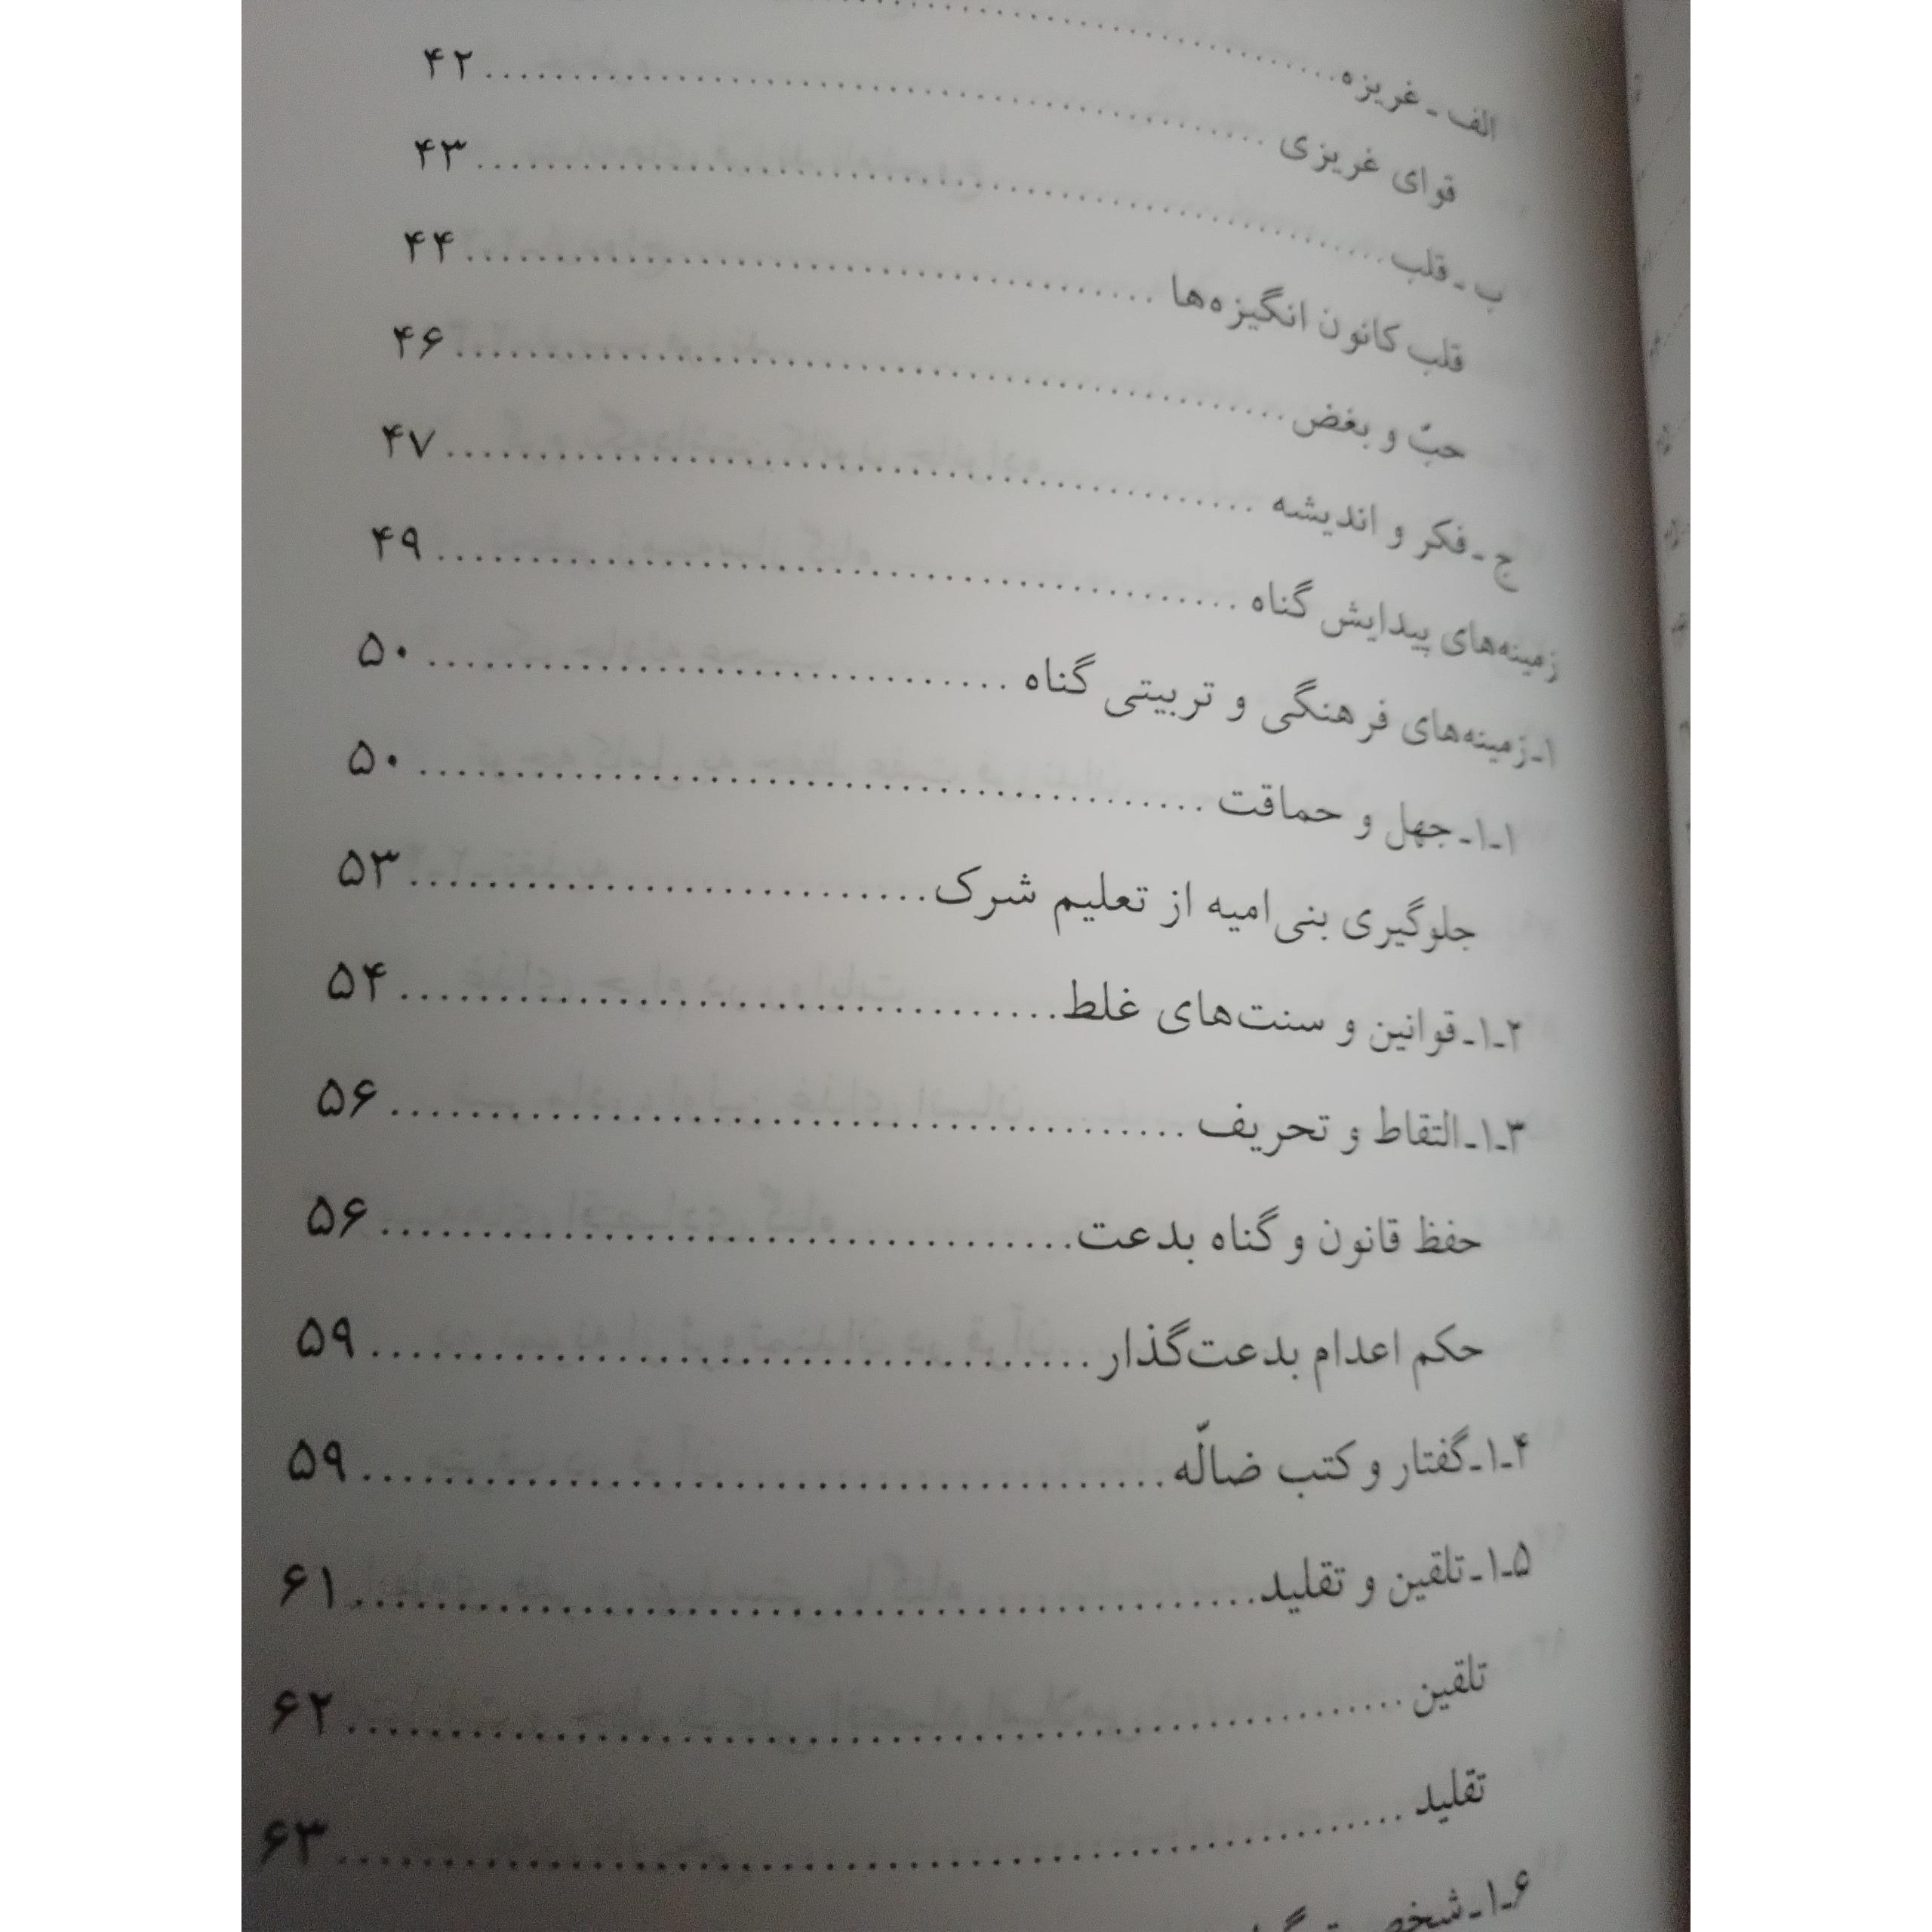 الف ـ غریزه
قوای غریزی ........ ۴۲
ب ـ قلب ........ ۴۳
قلب کانون انگیزه‌ها ........ ۴۴
حبّ و بغض ........ ۴۶
ج ـ فکر و اندیشه ........ ۴۷
زمینه‌های پیدایش گناه ........ ۴۹
۱ـ زمینه‌های فرهنگی و تربیتی گناه ........ ۵۰
۱ـ۱ـ جهل و حماقت ........ ۵۰
جلوگیری بنی‌امیه از تعلیم شرک ........ ۵۳
۲ـ۱ـ قوانین و سنت‌های غلط ........ ۵۴
۳ـ۱ـ التقاط و تحریف ........ ۵۶
حفظ قانون و گناه بدعت ........ ۵۶
حکم اعدام بدعت‌گذار ........ ۵۹
۴ـ۱ـ گفتار و کتب ضالّه ........ ۵۹
۵ـ۱ـ تلقین و تقلید ........ ۶۱
تلقین ........ ۶۲
تقلید ........ ۶۳
۶ـ۱ـ